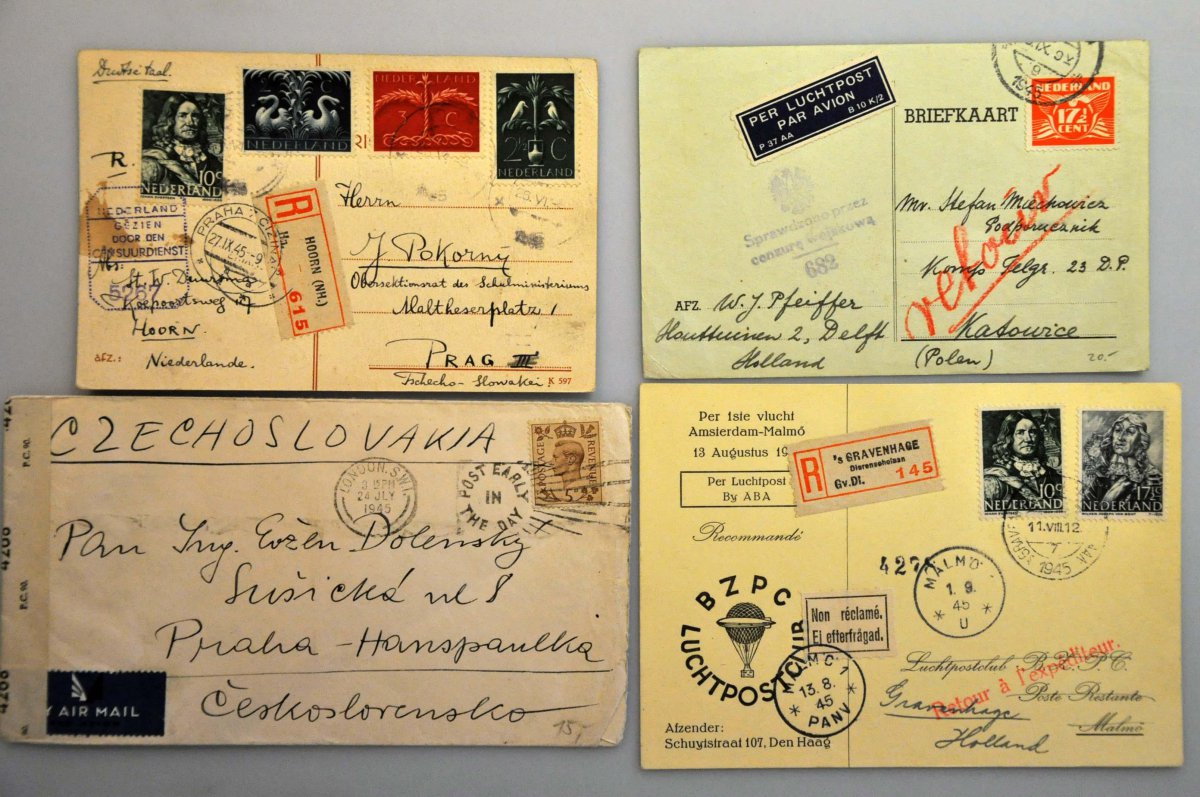 Duitse taal.
R.
10c
NEDERLAND
NEDERLAND
NEDERLAND
3 C
2½ C
NEDERLAND
NEDERLAND
GEZIEN
DOOR DEN
CENSUURDIENST
PRAHA
27.IX.45-9
R
HOORN (NH.)
615
Herrn
J Pokorný
Obersektionsrat des Schulministeriums
Maltheserplatz 1
PRAG III
Tschecho-Slowakei
K 597
HOORN
afz.:
Niederlande.
PER LUCHTPOST
PAR AVION
P 37 AA
B 10 K/2
BRIEFKAART
NEDERLAND
17½
CENT
1945
Sprawdzono przez
cenzurę wojskową
682
retour
Mr. Stefan Miechowicz
Podporucznik
Komp Telgr. 23 D.P.
Katowice
(Polen)
20.-
AFZ. W. J. Pfeiffer
Houttuinen 2, Delft
Holland
CZECHOSLOVAKIA
POSTAGE
REVENUE
5D
LONDON. S.W.1
3 15 PM
24 JLY
1945
POST EARLY
IN
THE DAY
Pan Ing. Evžen Dolenský
Sušická ul 8
Praha-Hanspaulka
Československo
15,-
P.C. 90.
4266
P.C. 90.
4266
BY AIR MAIL
Per 1ste vlucht
Amsterdam-Malmö
13 Augustus
Per Luchtpost
By ABA
Recommandé
R
's GRAVENHAGE
Gv.Dl. 145
10c
NEDERLAND
17½c
NEDERLAND
11.VIII.12
7
1945
427
MALMÖ
1. 9.
45
U
BZPC
LUCHTPOSTCLUB
Non réclamé.
Ei efterfrågad.
MALMÖ 1
13. 8.
45
PANK
Luchtpostclub B.Z.P.C.
Poste Restante
Malmö
Retour à l'expéditeur.
Gravenhage
Holland
Afzender:
Schuytstraat 107, Den Haag